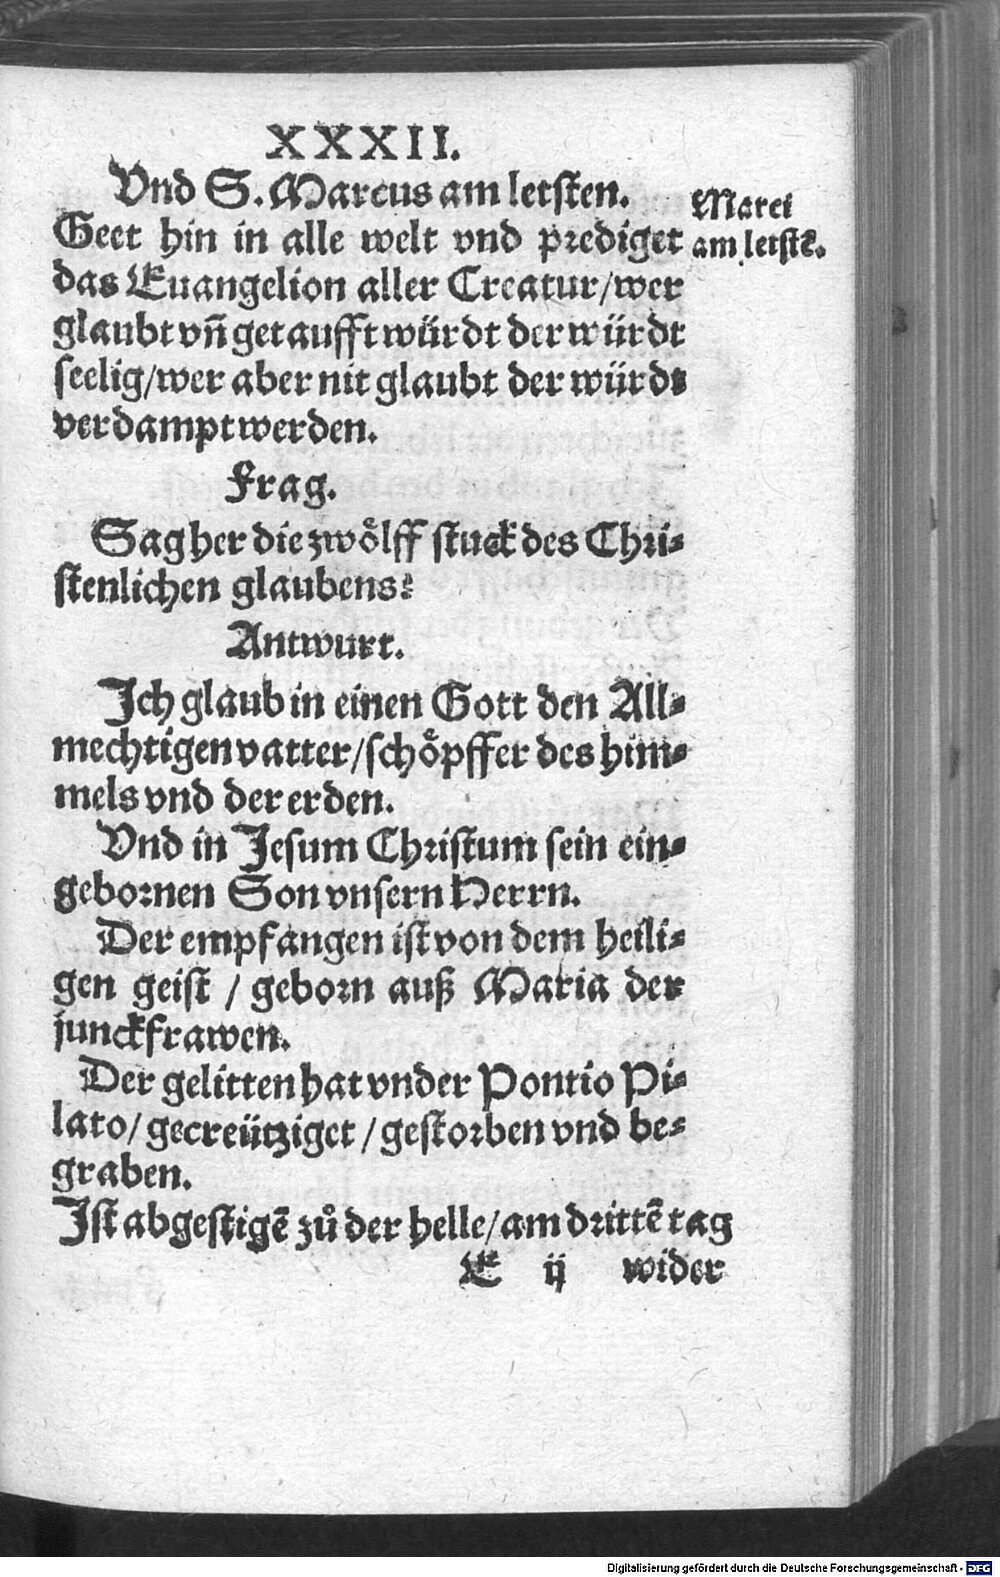 XXXII.
Vnd S. Marcus am letsten.
Geet hin in alle welt vnd prediget
das Euangelion aller Creatur/wer
glaubt vñ getaufft würdt der würdt
seelig/wer aber nit glaubt der würdt
verdampt werden.
Marci
am letstē.
Frag.
Sag her die zwoͤlff stuck des Chri⸗
stenlichen glaubens?
Antwurt.
Ich glaub in einen Gott den All⸗
mechtigen vatter/schoͤpffer des him⸗
mels vnd der erden.
Vnd in Jesum Christum sein ein⸗
gebornen Son vnsern Herrn.
Der empfangen ist von dem heili⸗
gen geist / geborn auß Maria der
junckfrawen.
Der gelitten hat vnder Pontio Pi⸗
lato/ gecreütziget / gestorben vnd be⸗
graben.
Ist abgestigē zuͦ der helle/am drittē tag
E ij wider
Digitalisierung gefördert durch die Deutsche Forschungsgemeinschaft - DFG